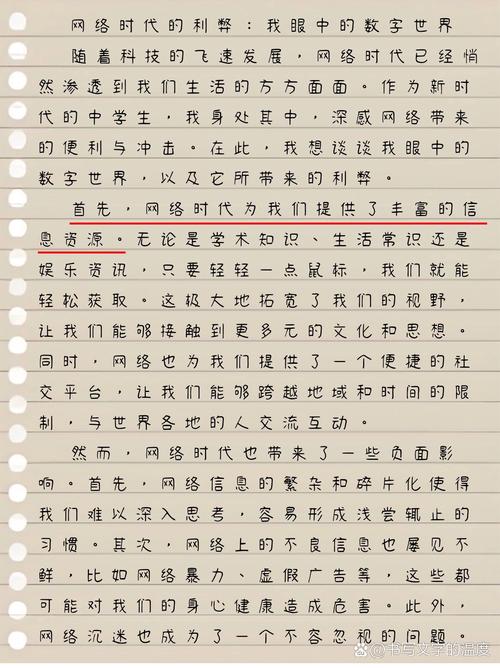 网络时代的利弊：我眼中的数字世界
随着科技的飞速发展，网络时代已经悄
然渗透到我们生活的方方面面。作为新时
代的中学生，我身处其中，深感网络带来
的便利与冲击。在此，我想谈谈我眼中的
数字世界，以及它所带来的利弊。
首先，网络时代为我们提供了丰富的信
息资源。无论是学术知识、生活常识还是
娱乐资讯，只要轻轻一点鼠标，我们就能
轻松获取。这极大地拓宽了我们的视野，
让我们能够接触到更多元的文化和思想。
同时，网络也为我们提供了一个便捷的社
交平台，让我们能够跨越地域和时间的限
制，与世界各地的人交流互动。
然而，网络时代也带来了一些负面影
响。首先，网络信息的繁杂和碎片化使得
我们难以深入思考，容易形成浅尝辄止的
习惯。其次，网络上的不良信息也屡见不
鲜，比如网络暴力、虚假广告等，这些都
可能对我们的身心健康造成危害。此外，
网络沉迷也成为了一个不容忽视的问题。
书写文字的温度